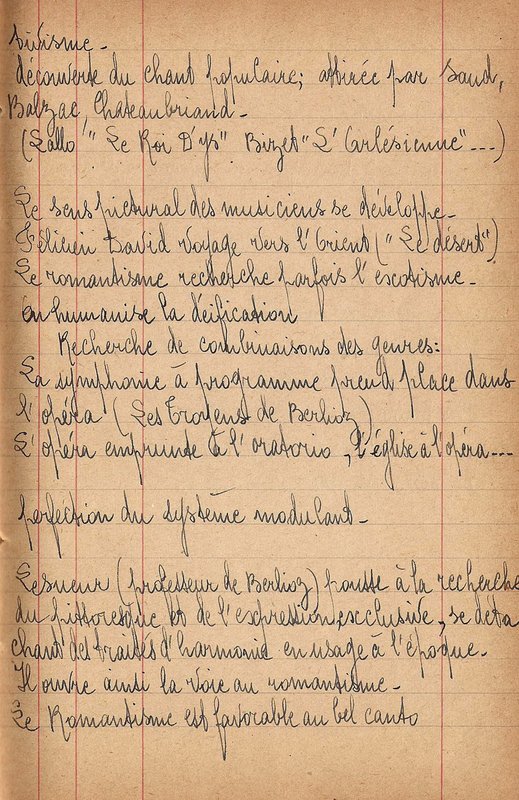 turisme -
découverte du chant populaire; attirée par Sand,
Balzac, Chateaubriand -
(Lallo "Le Roi D'ys" Bizet "L'Arlésienne"---)
Le sens pictural des musiciens se développe -
Félicien David voyage vers l'Orient ("Le désert")
Le romantisme recherche parfois l'exotisme -
on humanise la déification
Recherche de combinaisons des genres:
La symphonie à programme prend place dans
l'opéra (Les Troyens de Berlioz)
L'opéra emprunte à l'oratorio, l'église à l'opéra---
perfection du système modulant -
Lesueur (professeur de Berlioz) pousse à la recherche
du pittoresque et de l'expression exclusive, se déta
chant des traités d'harmonie en usage à l'époque -
Il ouvre ainsi la voie au romantisme -
Le Romantisme est favorable au bel canto